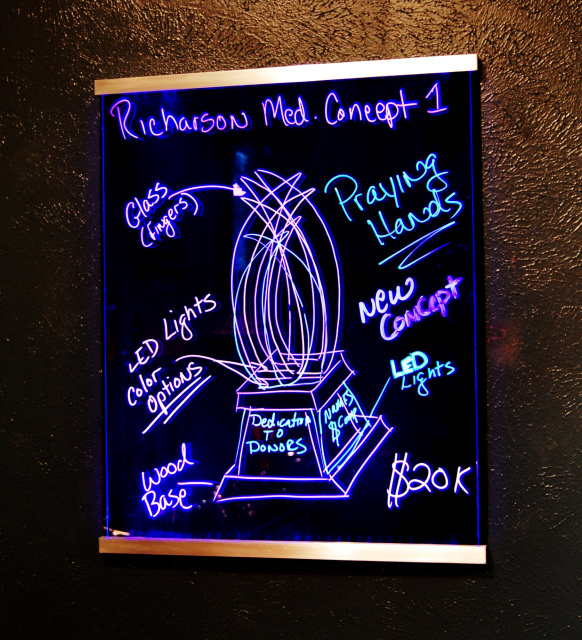 Richarson Med. Concept 1
Glass
(Fingers)
Praying
Hands
New
Concept
LED Lights
Color
Options
LED
Lights
Dedication
TO
DONORS
Names
Wood
Base
$20K